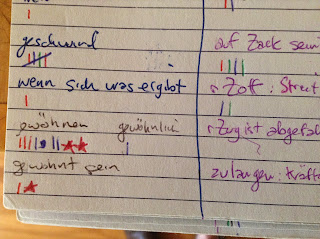 geschwind
wenn sich was ergibt
gewöhnen gewöhnlich
gewohnt sein
auf Zack sein
r Zoff : Streit
r Zug ist abgefah
zulangen : kräft